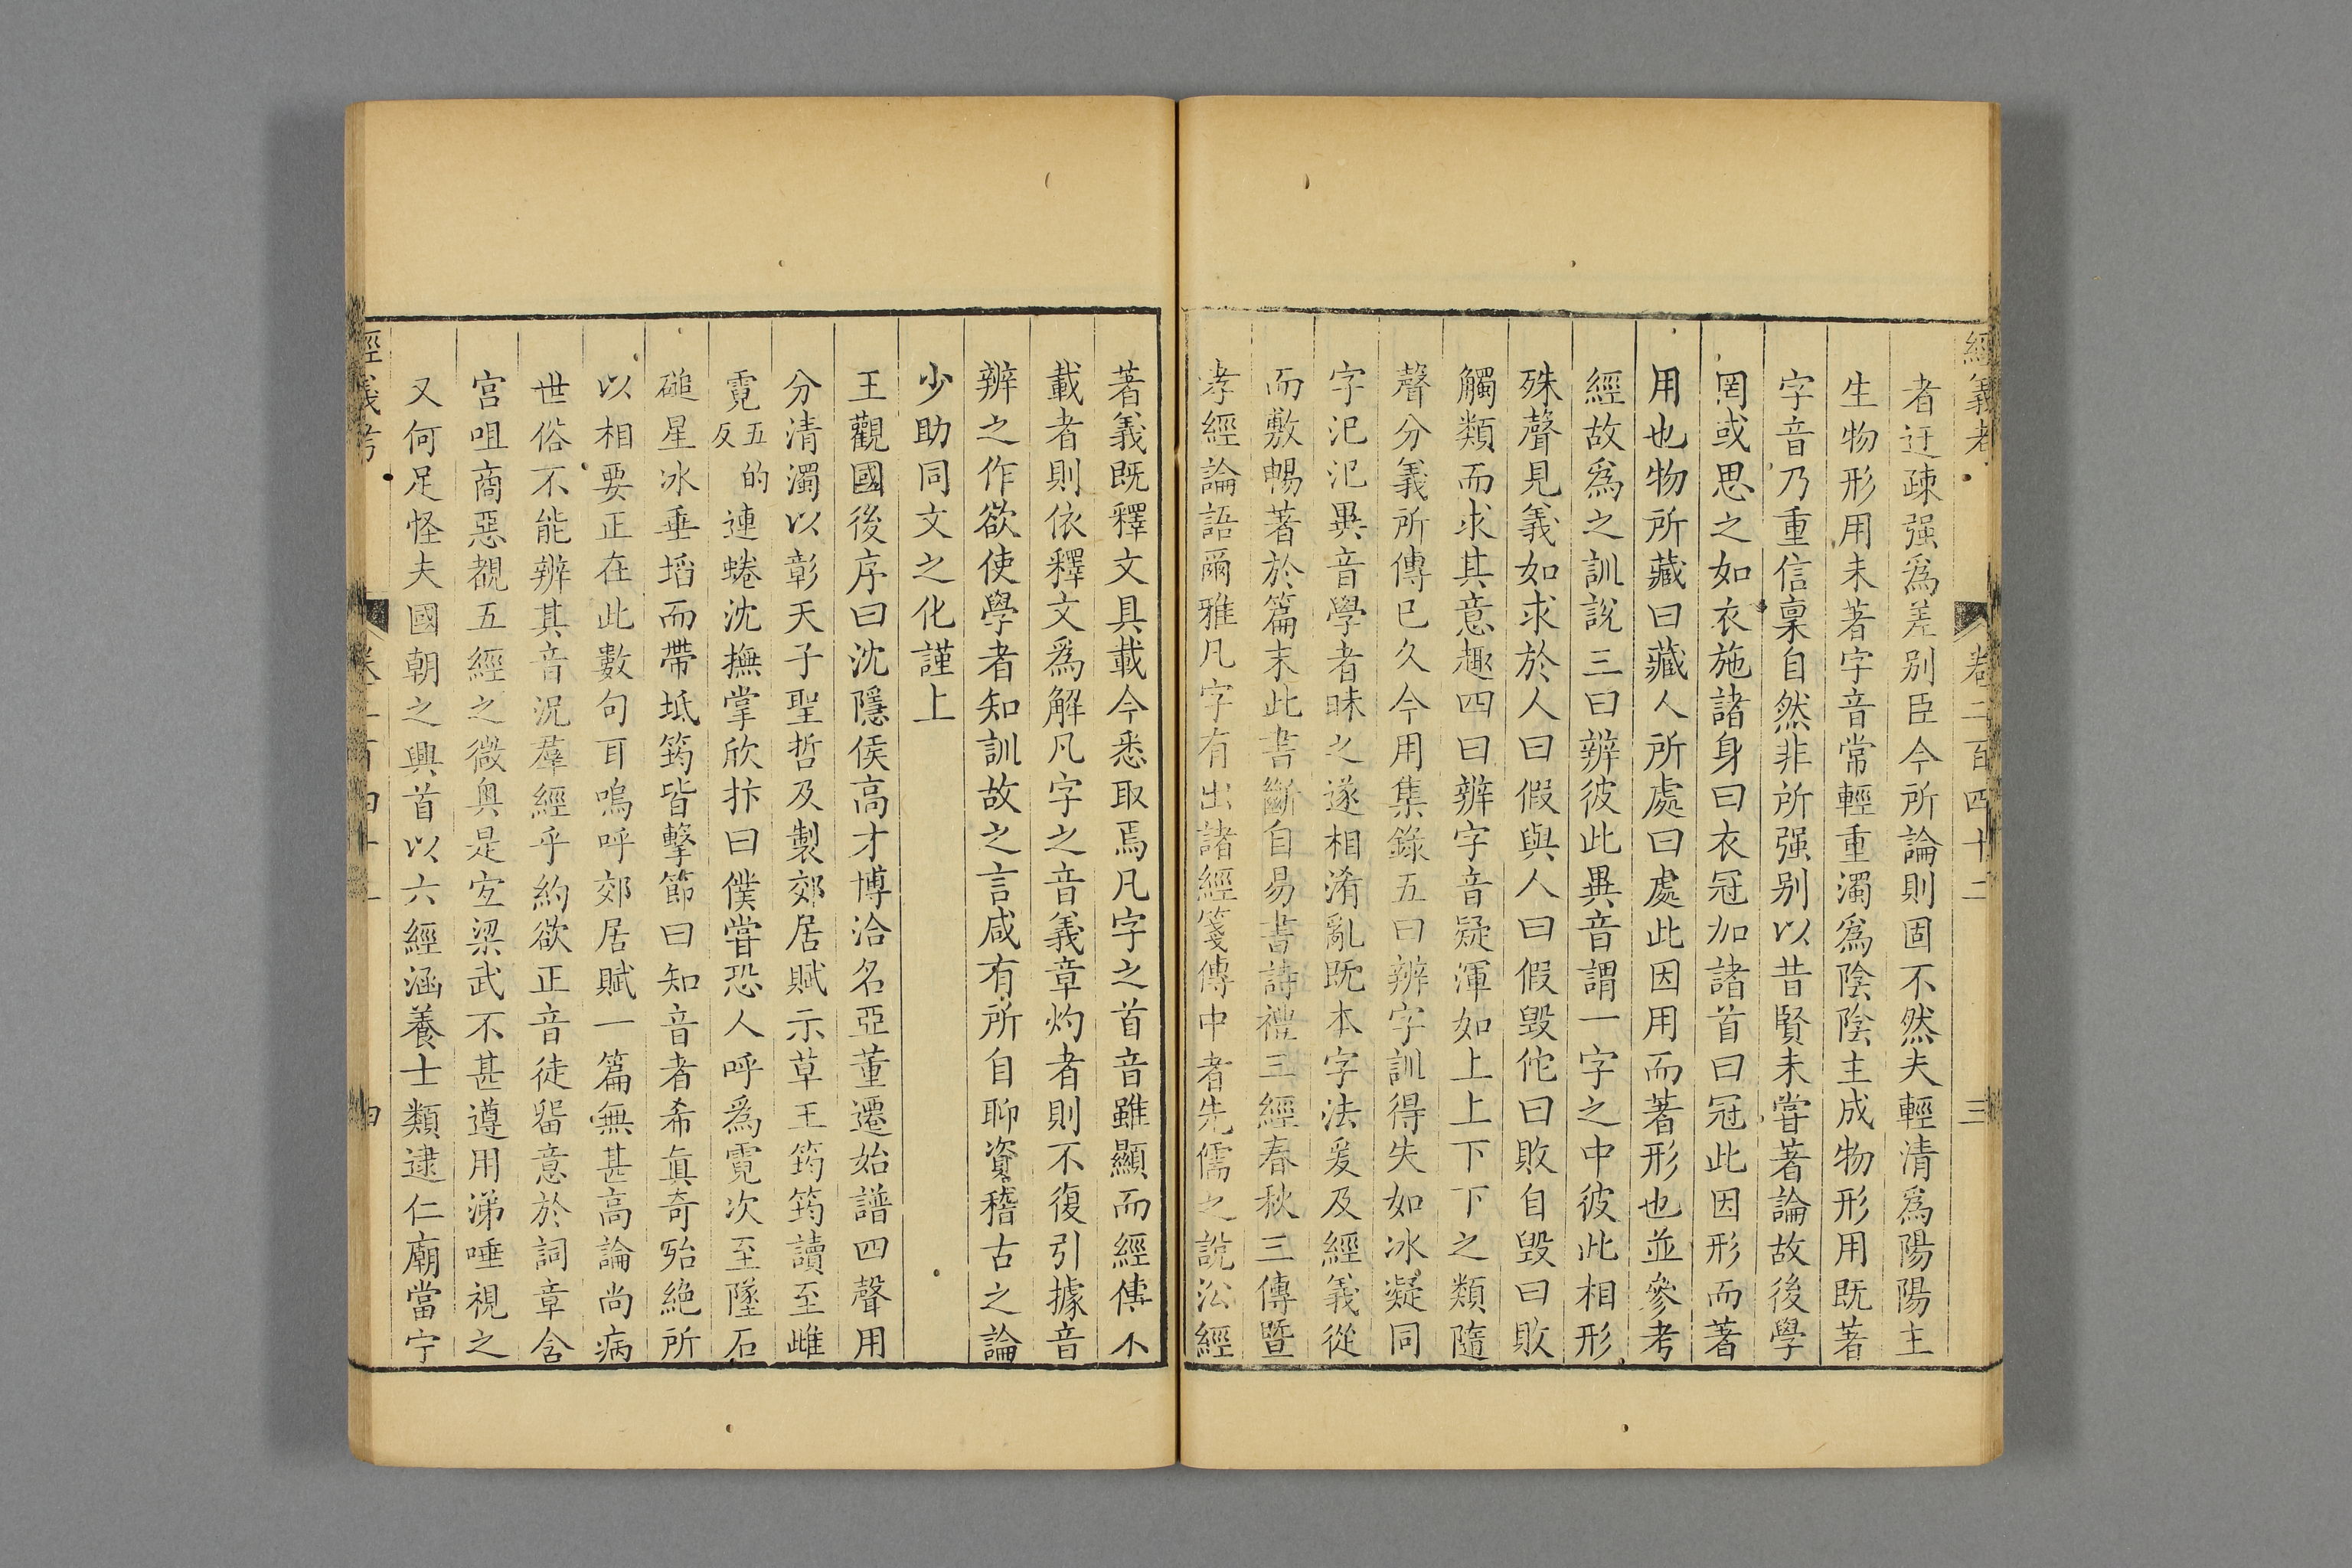 經義考 卷二百四十二 三
者迂疎强爲差别臣今所論則固不然夫輕清爲陽陽主
生物形用未著字音常輕重濁爲陰陰主成物形用既著
字音乃重信稟自然非所强别以昔賢未嘗著論故後學
罔或思之如衣施諸身曰衣冠加諸首曰冠此因形而著
用也物所藏曰藏人所處曰處此因用而著形也並參考
經故爲之訓說三曰辨彼此異音謂一字之中彼此相形
殊聲見義如求於人曰假與人曰假毀佗曰敗自毀曰敗
觸類而求其意趣四曰辨字音疑渾如上上下下之類隨
聲分義所傳已久今用集錄五曰辨字訓得失如冰凝同
字汜氾異音學者昧之遂相淆亂既本字法爰及經義從
而敷暢著於篇末此書斷自易書詩禮三經春秋三傳暨
孝經論語爾雅凡字有出諸經箋傳中者先儒之說㳂經
著義既釋文具載今悉取焉凡字之首音雖顯而經傳不
載者則依釋文爲解凡字之音義章灼者則不復引據音
辨之作欲使學者知訓故之言咸有所自聊資稽古之論
少助同文之化謹上
王觀國後序曰沈隱侯高才博洽名亞董遷始譜四聲用
分清濁以彰天子聖哲及製郊居賦示草王筠筠讀至雌
霓五的反連蜷沈撫掌欣抃曰僕嘗恐人呼爲霓次至墜石
磓星冰垂坮而帶坻筠皆擊節曰知音者希眞奇殆絶所
以相要正在此數句耳嗚呼郊居賦一篇無甚高論尚病
世俗不能辨其音況羣經乎約欲正音徒留意於詞章含
宮咀商惡覩五經之微奥是宐梁武不甚遵用涕唾視之
又何足怪夫國朝之興首以六經涵養士類逮仁廟當宁
經義考 卷二百四十二 四